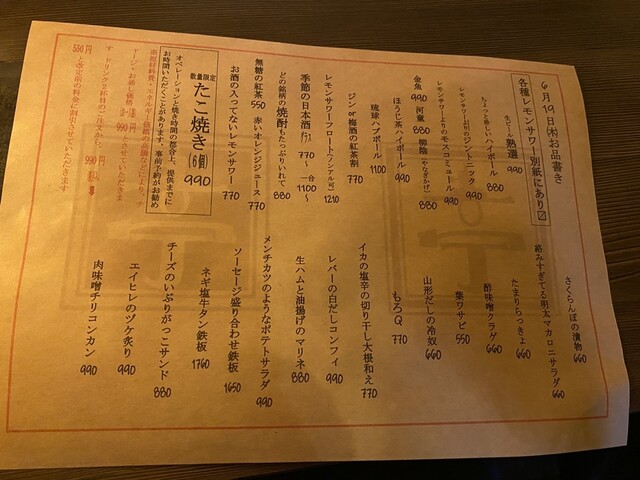 6月19日(木)お品書き
各種レモンサワー別紙にあり
生ビール 熟選 990
ちょっと珍しいハイボール 880
レモンサワー よりの ジントニック 990
レモンサワー よりの モスコミュール 990
金魚 990 河童 880 柳陰(やなぎかげ) 880
ほうじ茶ハイボール 990
琉球ハブボール 1100
ジン or 梅酒の紅茶割 770
レモンサワーフロート(ノンアル可) 1210
季節の日本酒 グラス 770〜 一合 1100〜
どの銘柄の焼酎もたっぷりいれて 880
無糖の紅茶 550 赤いオレンジジュース 770
お酒の入ってないレモンサワー 770
数量限定 たこ焼き(6個) 990
オペレーションと焼き時間の都合上、提供までに
お時間いただくことがあります。事前予約がお勧め
ドリンク2杯目のご注文から
と改定前の料金に割引させていただきます
さくらんぼの漬物 660
絡みすぎてる明太マカロニサラダ 660
たまりらっきょ 660
酢味噌クラゲ 660
葉ワサビ 550
山形だしの冷奴 660
もろQ 770
イカの塩辛の切り干し大根和え 770
レバーの白だしコンフィ 990
生ハムと油揚げのマリネ 880
メンチカツのようなポテトサラダ 990
ソーセージ盛り合わせ鉄板 1650
ネギ塩牛タン鉄板 1760
チーズのいぶりがっこサンド 880
エイヒレのヅケ炙り 990
肉味噌チリコンカン 990